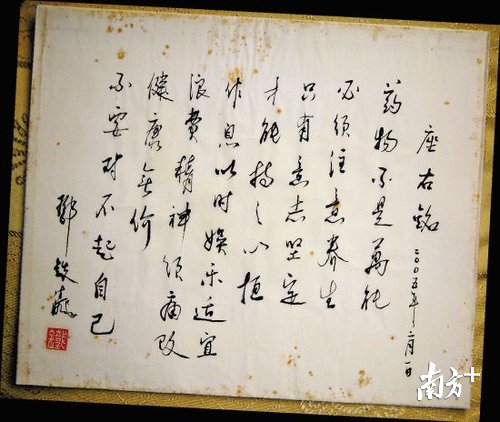 座右铭
二〇〇五年二月一日
药物不是萬能
必须注意养生
只有意志坚定
才能持之以恒
作息以时娱乐适宜
浪费精神须痛改
健康無价
不要对不起自己
鄧铁涛
南方+